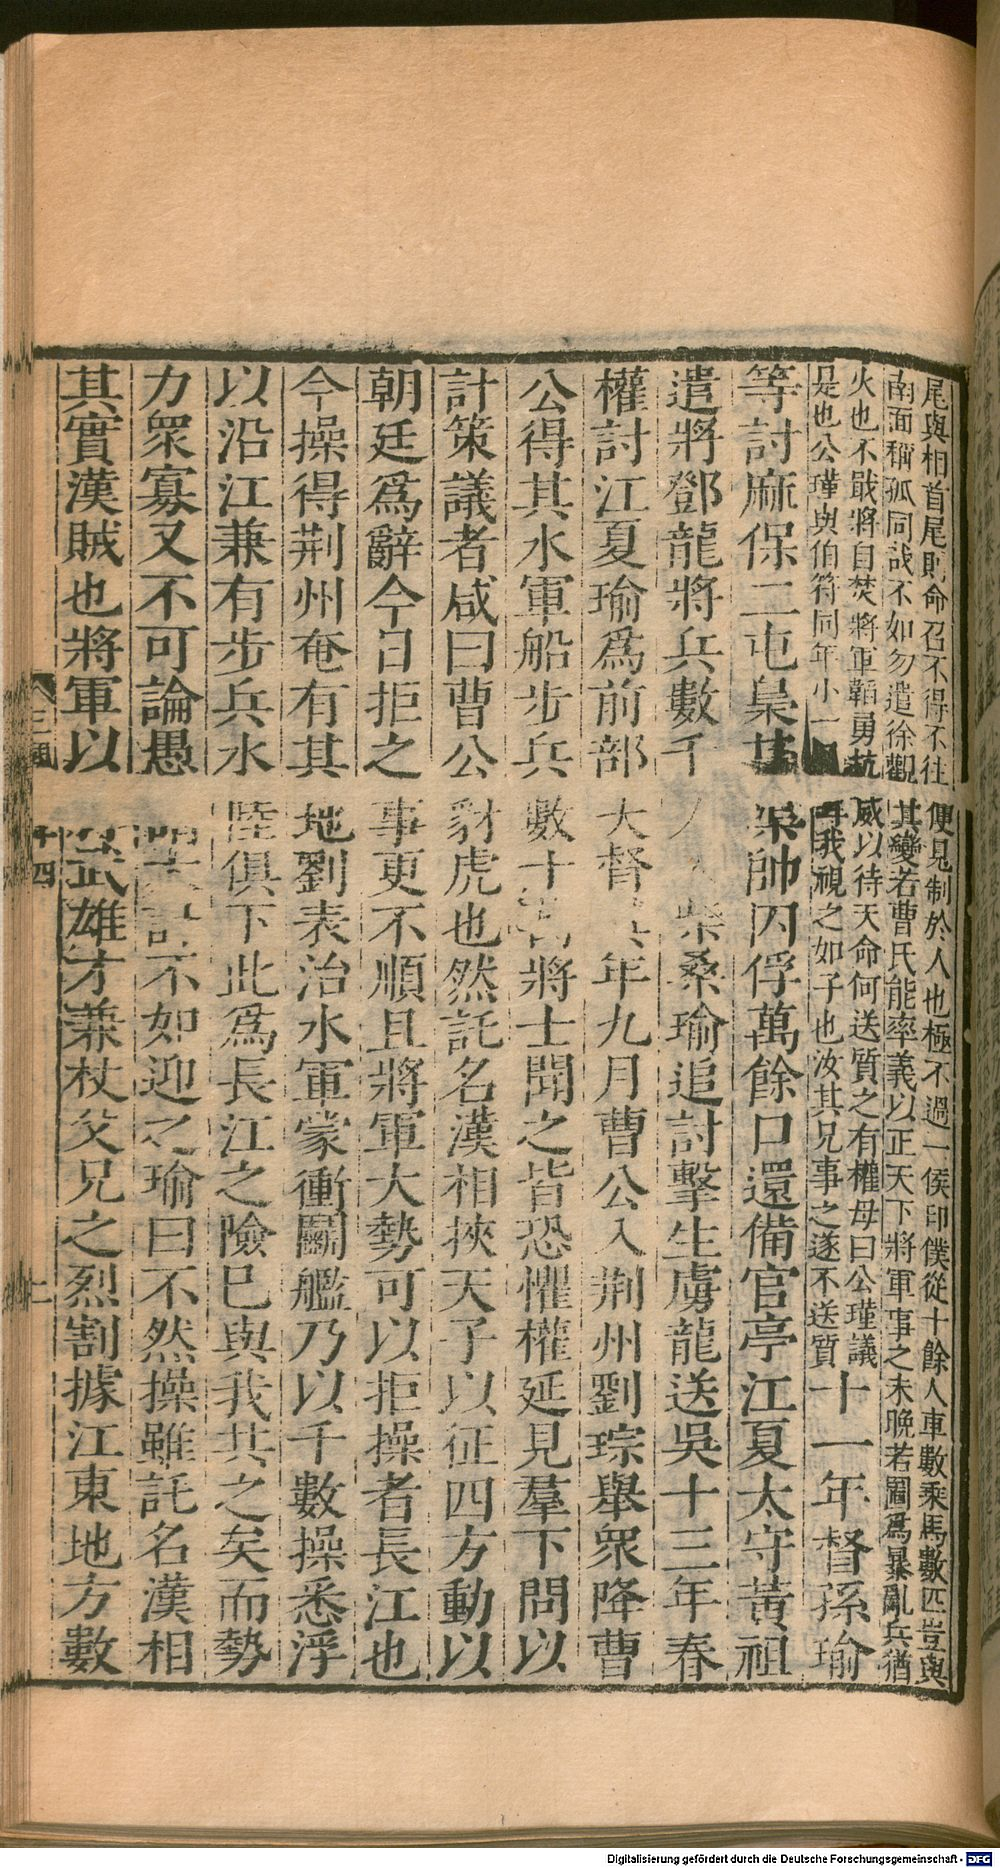 尾與相首尾則命召不得不往便見制於人也極不過一侯印僕從十餘人車數乘馬數匹豈與
南面稱孤同哉不如勿遣徐觀其變若曹氏能率義以正天下將軍事之未晚若圖爲暴亂兵猶
火也不戢將自焚將軍韜勇抗威以待天命何送質之有權母曰公瑾議
是也公瑾與伯符同年小一月耳我視之如子也汝其兄事之遂不送質
十一年督孫瑜
等討麻保二屯梟其渠帥囚俘萬餘口還備官亭江夏太守黃祖
遣將鄧龍將兵數千人入柴桑瑜追討擊生虜龍送吳十三年春
權討江夏瑜爲前部大督其年九月曹公入荆州劉琮舉衆降曹
公得其水軍船步兵數十萬將士聞之皆恐懼權延見羣下問以
計策議者咸曰曹公豺虎也然託名漢相挾天子以征四方動以
朝廷爲辭今日拒之事更不順且將軍大勢可以拒操者長江也
今操得荆州奄有其地劉表治水軍蒙衝鬭艦乃以千數操悉浮
以沿江兼有步兵水陸俱下此爲長江之險巳與我共之矣而勢
力衆寡又不可論愚計不如迎之瑜曰不然操雖託名漢相
其實漢賊也將軍以武雄才兼杖父兄之烈割據江東地方數
三國 十四
Digitalisierung gefördert durch die Deutsche Forschungsgemeinschaft - DFG